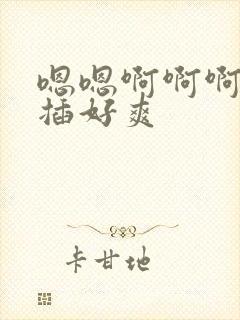 嗯嗯啊啊啊
插好爽
卡甘地